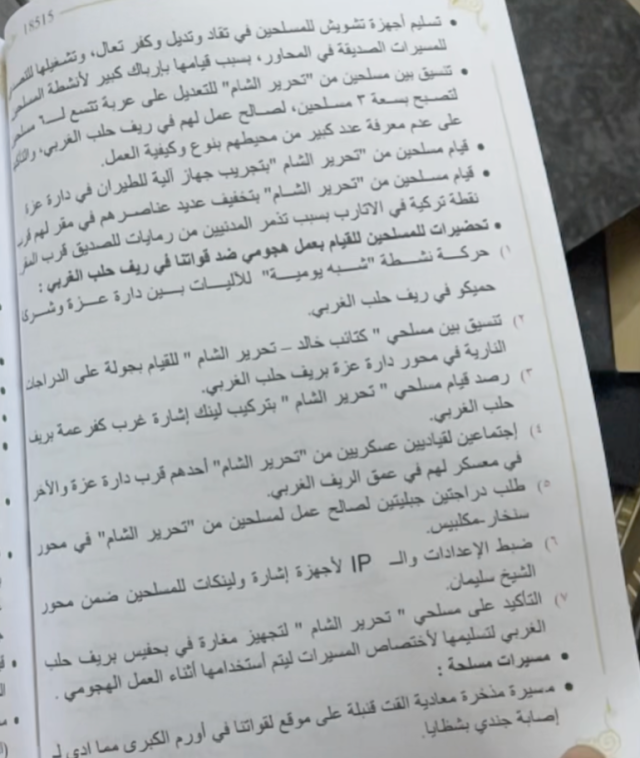 18515
• تسليم أجهزة تشويش للمسلحين في تقاد وتديل وكفر تعال، وتشغيلها
للمسيرات الصديقة في المحاور، بسبب قيامها بإرباك كبير لأنشطة
• تنسيق بين مسلحين من "تحرير الشام" للتعديل على عربة تتسع لـ٦
لتصبح بسعة ٣ مسلحين، لصالح عمل لهم في ريف حلب الغربي،
على عدم معرفة عدد كبير من محيطهم بنوع وكيفية العمل.
• قيام مسلحين من "تحرير الشام "بتجريب جهاز آلية للطيران في دارة عزة
• قيام مسلحين من "تحرير الشام" بتخفيف عديد عناصرهم في مقر لهم
نقطة تركية في الاتارب بسبب تذمر المدنيين من رمايات للصديق قرب
• تحضيرات للمسلحين للقيام بعمل هجومي ضد قواتنا في ريف حلب الغربي :
١) حركة نشطة "شبه يومية" للآليات بين دارة عزة
حميكو في ريف حلب الغربي.
٢) تنسيق بين مسلحي " كتائب خالد – تحرير الشام " للقيام بجولة على
النارية في محور دارة عزة بريف حلب الغربي.
٣) رصد قيام مسلحي " تحرير الشام " بتركيب لينك إشارة غرب كفر عمة بريف
حلب الغربي.
٤) إجتماعين لقياديين عسكريين من "تحرير الشام" أحدهم قرب دارة عزة والآخر
في معسكر لهم في عمق الريف الغربي.
٥) طلب دراجتين جبليتين لصالح عمل لمسلحين من "تحرير الشام" في محور
سنخار-مكلبيس.
٦) ضبط الإعدادات والـ IP لأجهزة إشارة ولينكات للمسلحين ضمن محور
الشيخ سليمان.
٧) التأكيد على مسلحي " تحرير الشام " لتجهيز مغارة في بحفيس بريف حلب
الغربي لتسليمها لأختصاص المسيرات ليتم أستخدامها أثناء العمل الهجومي .
• مسيرات مسلحة :
• مسيرة مذخرة معادية القت قنبلة على موقع لقواتنا في أورم الكبرى مما ادى لـ
إصابة جندي بشظايا.